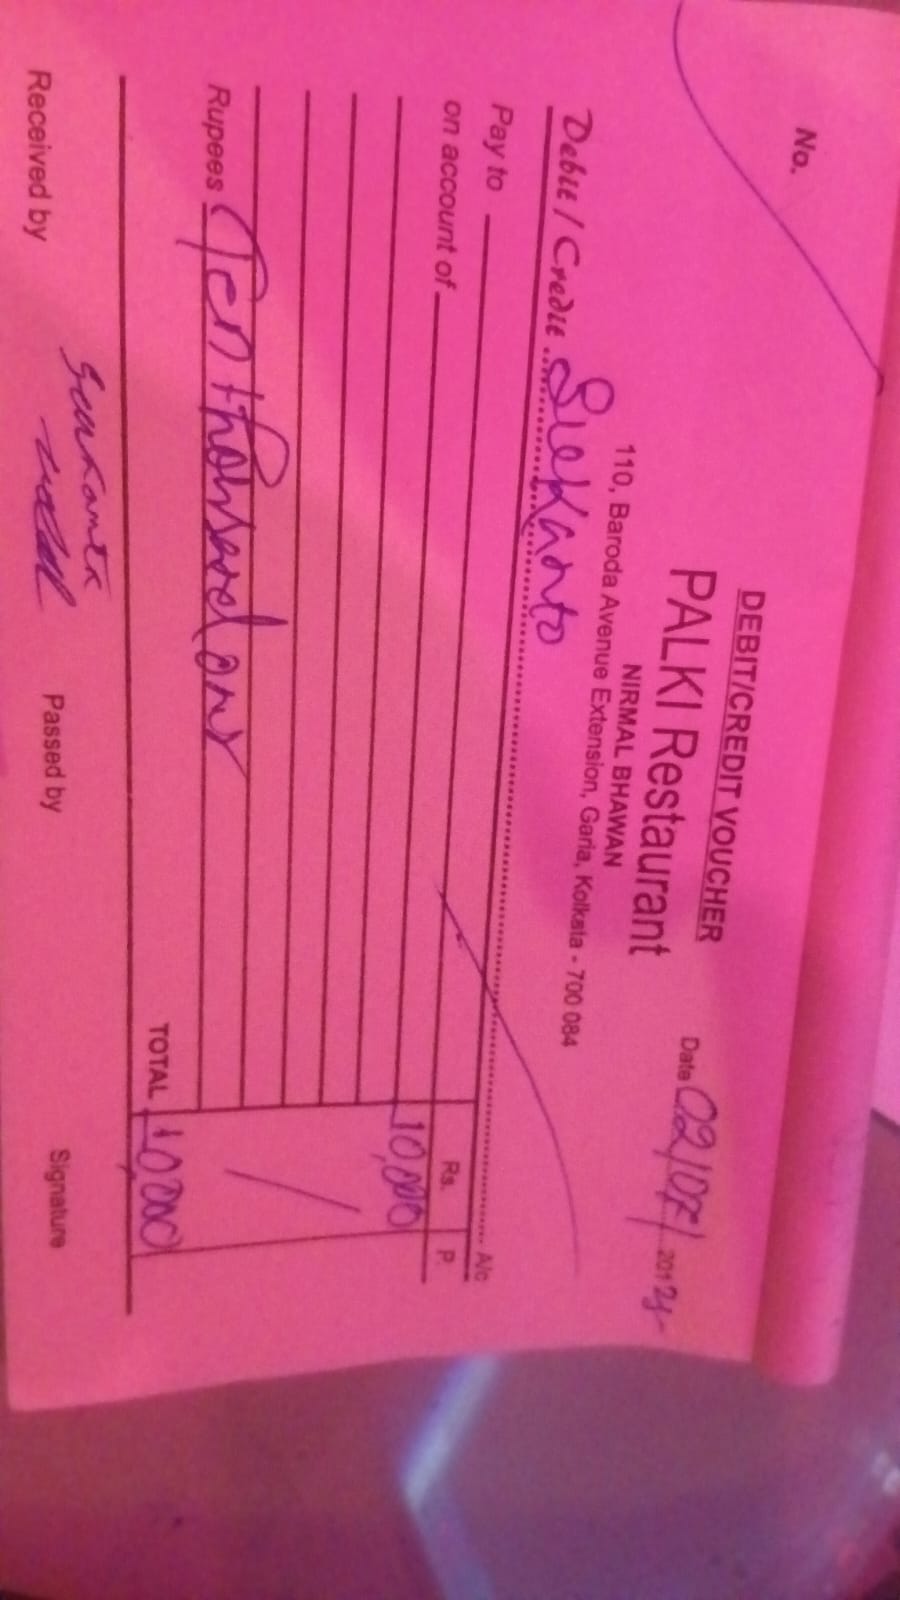 No.
DEBIT/CREDIT VOUCHER
PALKI Restaurant
NIRMAL BHAWAN
110, Baroda Avenue Extension, Garia, Kolkata - 700 084
Date 02/07/ 201
Debit / Credit A/c
Pay to
on account of Rs. P.
10,000
Rupees Ten thousand only
TOTAL 10,000
Received by Passed by Signature